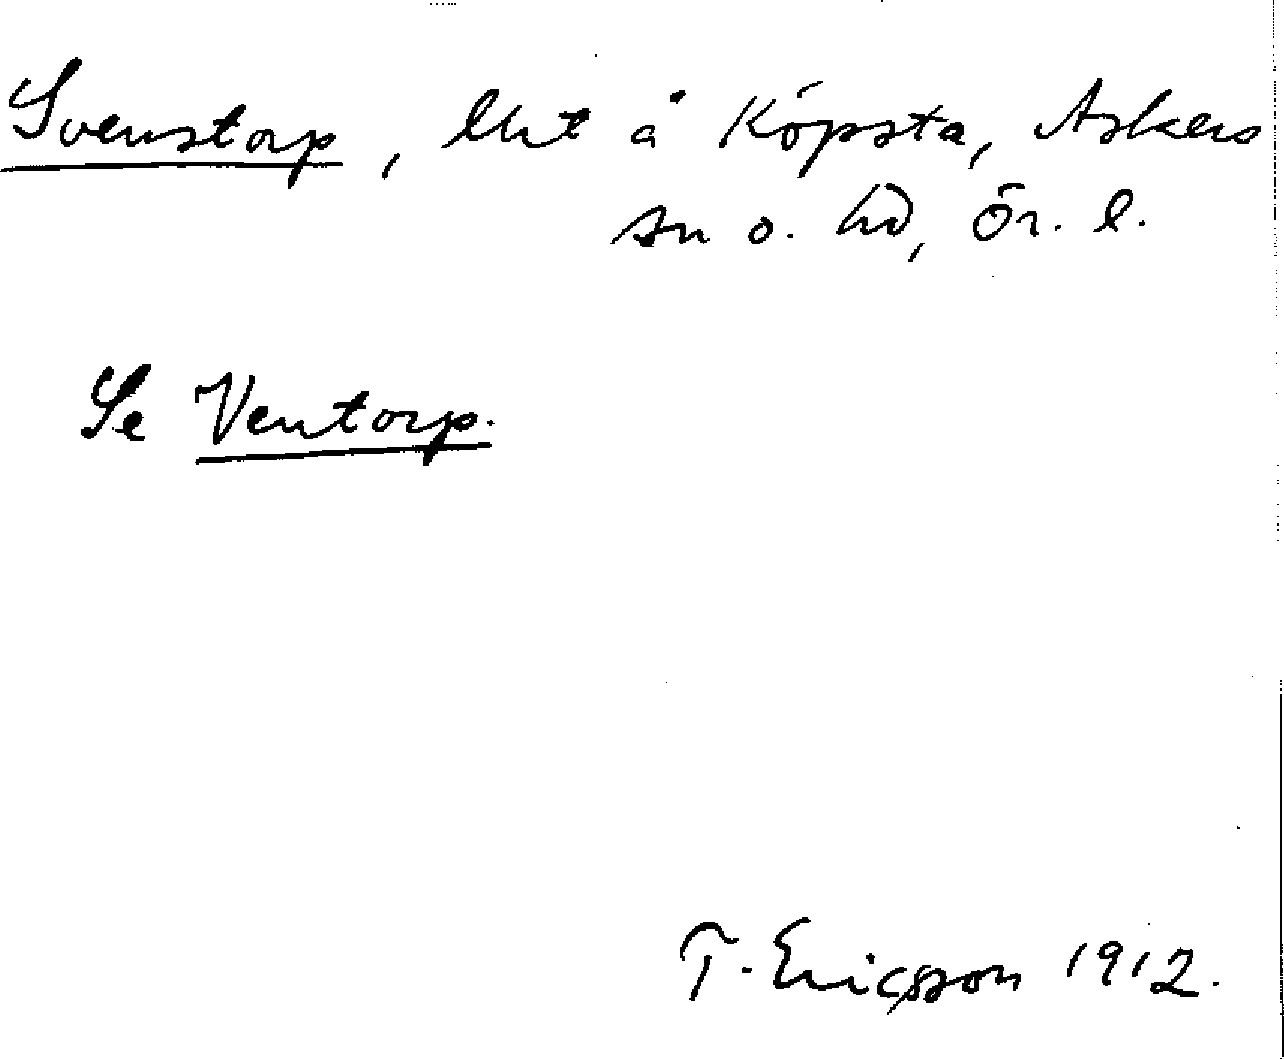 Svenstorp, lht å Köpsta, Askers
sn o. hd, Ör. l.
Se Ventorp.
T. Ericsson 1912.